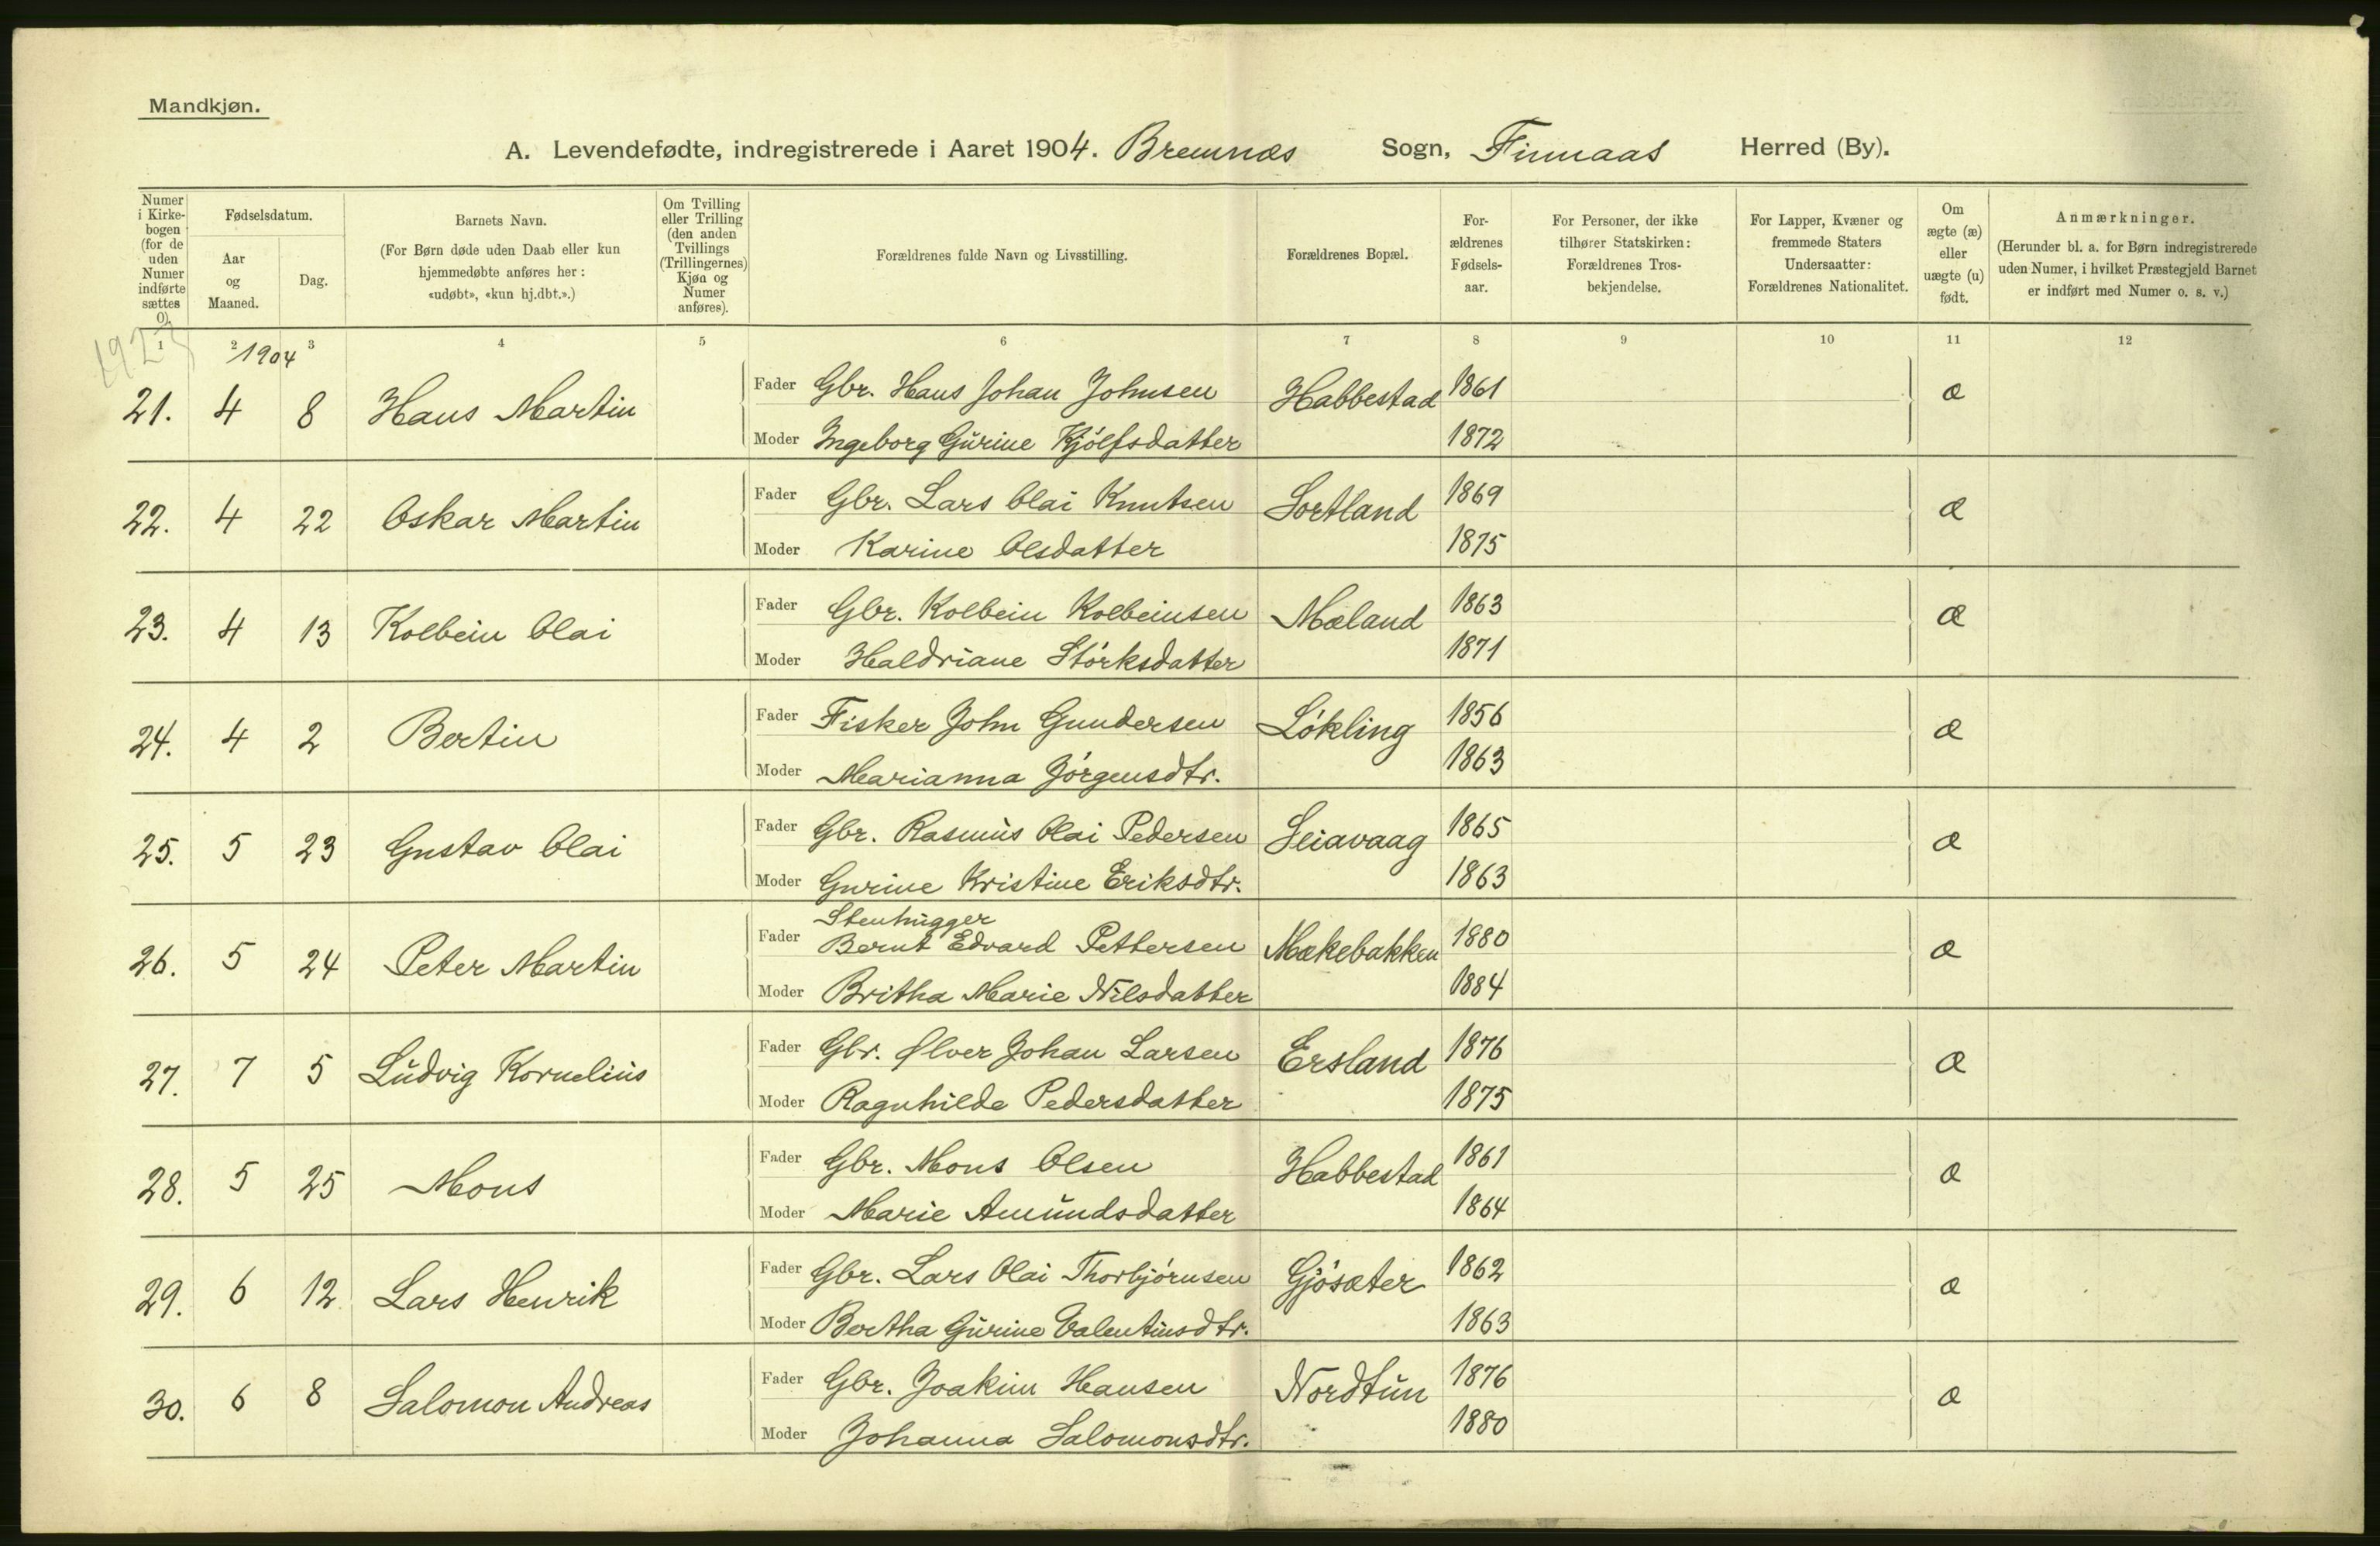 Mandkjøn.
A. Levendefødte, indregistrerede i Aaret 1904. Bremnæs Sogn, Finnaas Herred (By).
Numer i Kirkebogen (for de uden Numer indførte sættes 0).
Fødselsdatum.
Aar og Maaned.
Dag.
Barnets Navn.
(For Børn døde uden Daab eller kun hjemmedøbte anføres her: «udøbt», «kun hj.dbt.».)
Om Tvilling eller Trilling (den anden Tvillings (Trillingernes) Kjøn og Numer anføres).
Forældrenes fulde Navn og Livsstilling.
Forældrenes Bopæl.
Forældrenes Fødselsaar.
For Personer, der ikke tilhører Statskirken: Forældrenes Trosbekjendelse.
For Lapper, Kvæner og fremmede Staters Undersaatter: Forældrenes Nationalitet.
Om ægte (æ) eller uægte (u) født.
Anmærkninger.
(Herunder bl. a. for Børn indregistrerede uden Numer, i hvilket Præstegjeld Barnet er indført med Numer o. s. v.)
1 2 3 4 5 6 7 8 9 10 11 12
1904
21. 4 8 Hans Martin Fader Gbr. Hans Johan Johnsen Habbestad 1861 æ
Moder Ingeborg Gurine Kjölfsdatter 1872
22. 4 22 Oskar Martin Fader Gbr. Lars Olai Knutsen Sortland 1869 æ
Moder Karine Olsdatter 1875
23. 4 13 Kolbein Olai Fader Gbr. Kolbein Kolbeinsen Mæland 1863 æ
Moder Haldriane Störksdatter 1871
24. 4 2 Bertin Fader Fisker John Gundersen Lökling 1856 æ
Moder Marianna Jörgensdtr. 1863
25. 5 23 Gustav Olai Fader Gbr. Rasmus Olai Pedersen Seiavaag 1865 æ
Moder Gurine Kristine Eriksdtr. 1863
26. 5 24 Peter Martin Fader Stenhugger Bernt Edvard Pettersen Mækebakken 1880 æ
Moder Britha Marie Nilsdatter 1884
27. 7 5 Ludvig Kornelius Fader Gbr. Ølver Johan Larsen Ersland 1876 æ
Moder Ragnhilde Pedersdatter 1875
28. 5 25 Mons Fader Gbr. Mons Olsen Habbestad 1861 æ
Moder Marie Amundsdatter 1864
29. 6 12 Lars Henrik Fader Gbr. Lars Olai Thorbjörnsen Gjösæter 1862 æ
Moder Bertha Gurine Valentinsdtr. 1863
30. 6 8 Salomon Andreas Fader Gbr. Joakim Hansen Nordtun 1876 æ
Moder Johanna Salomonsdtr. 1880